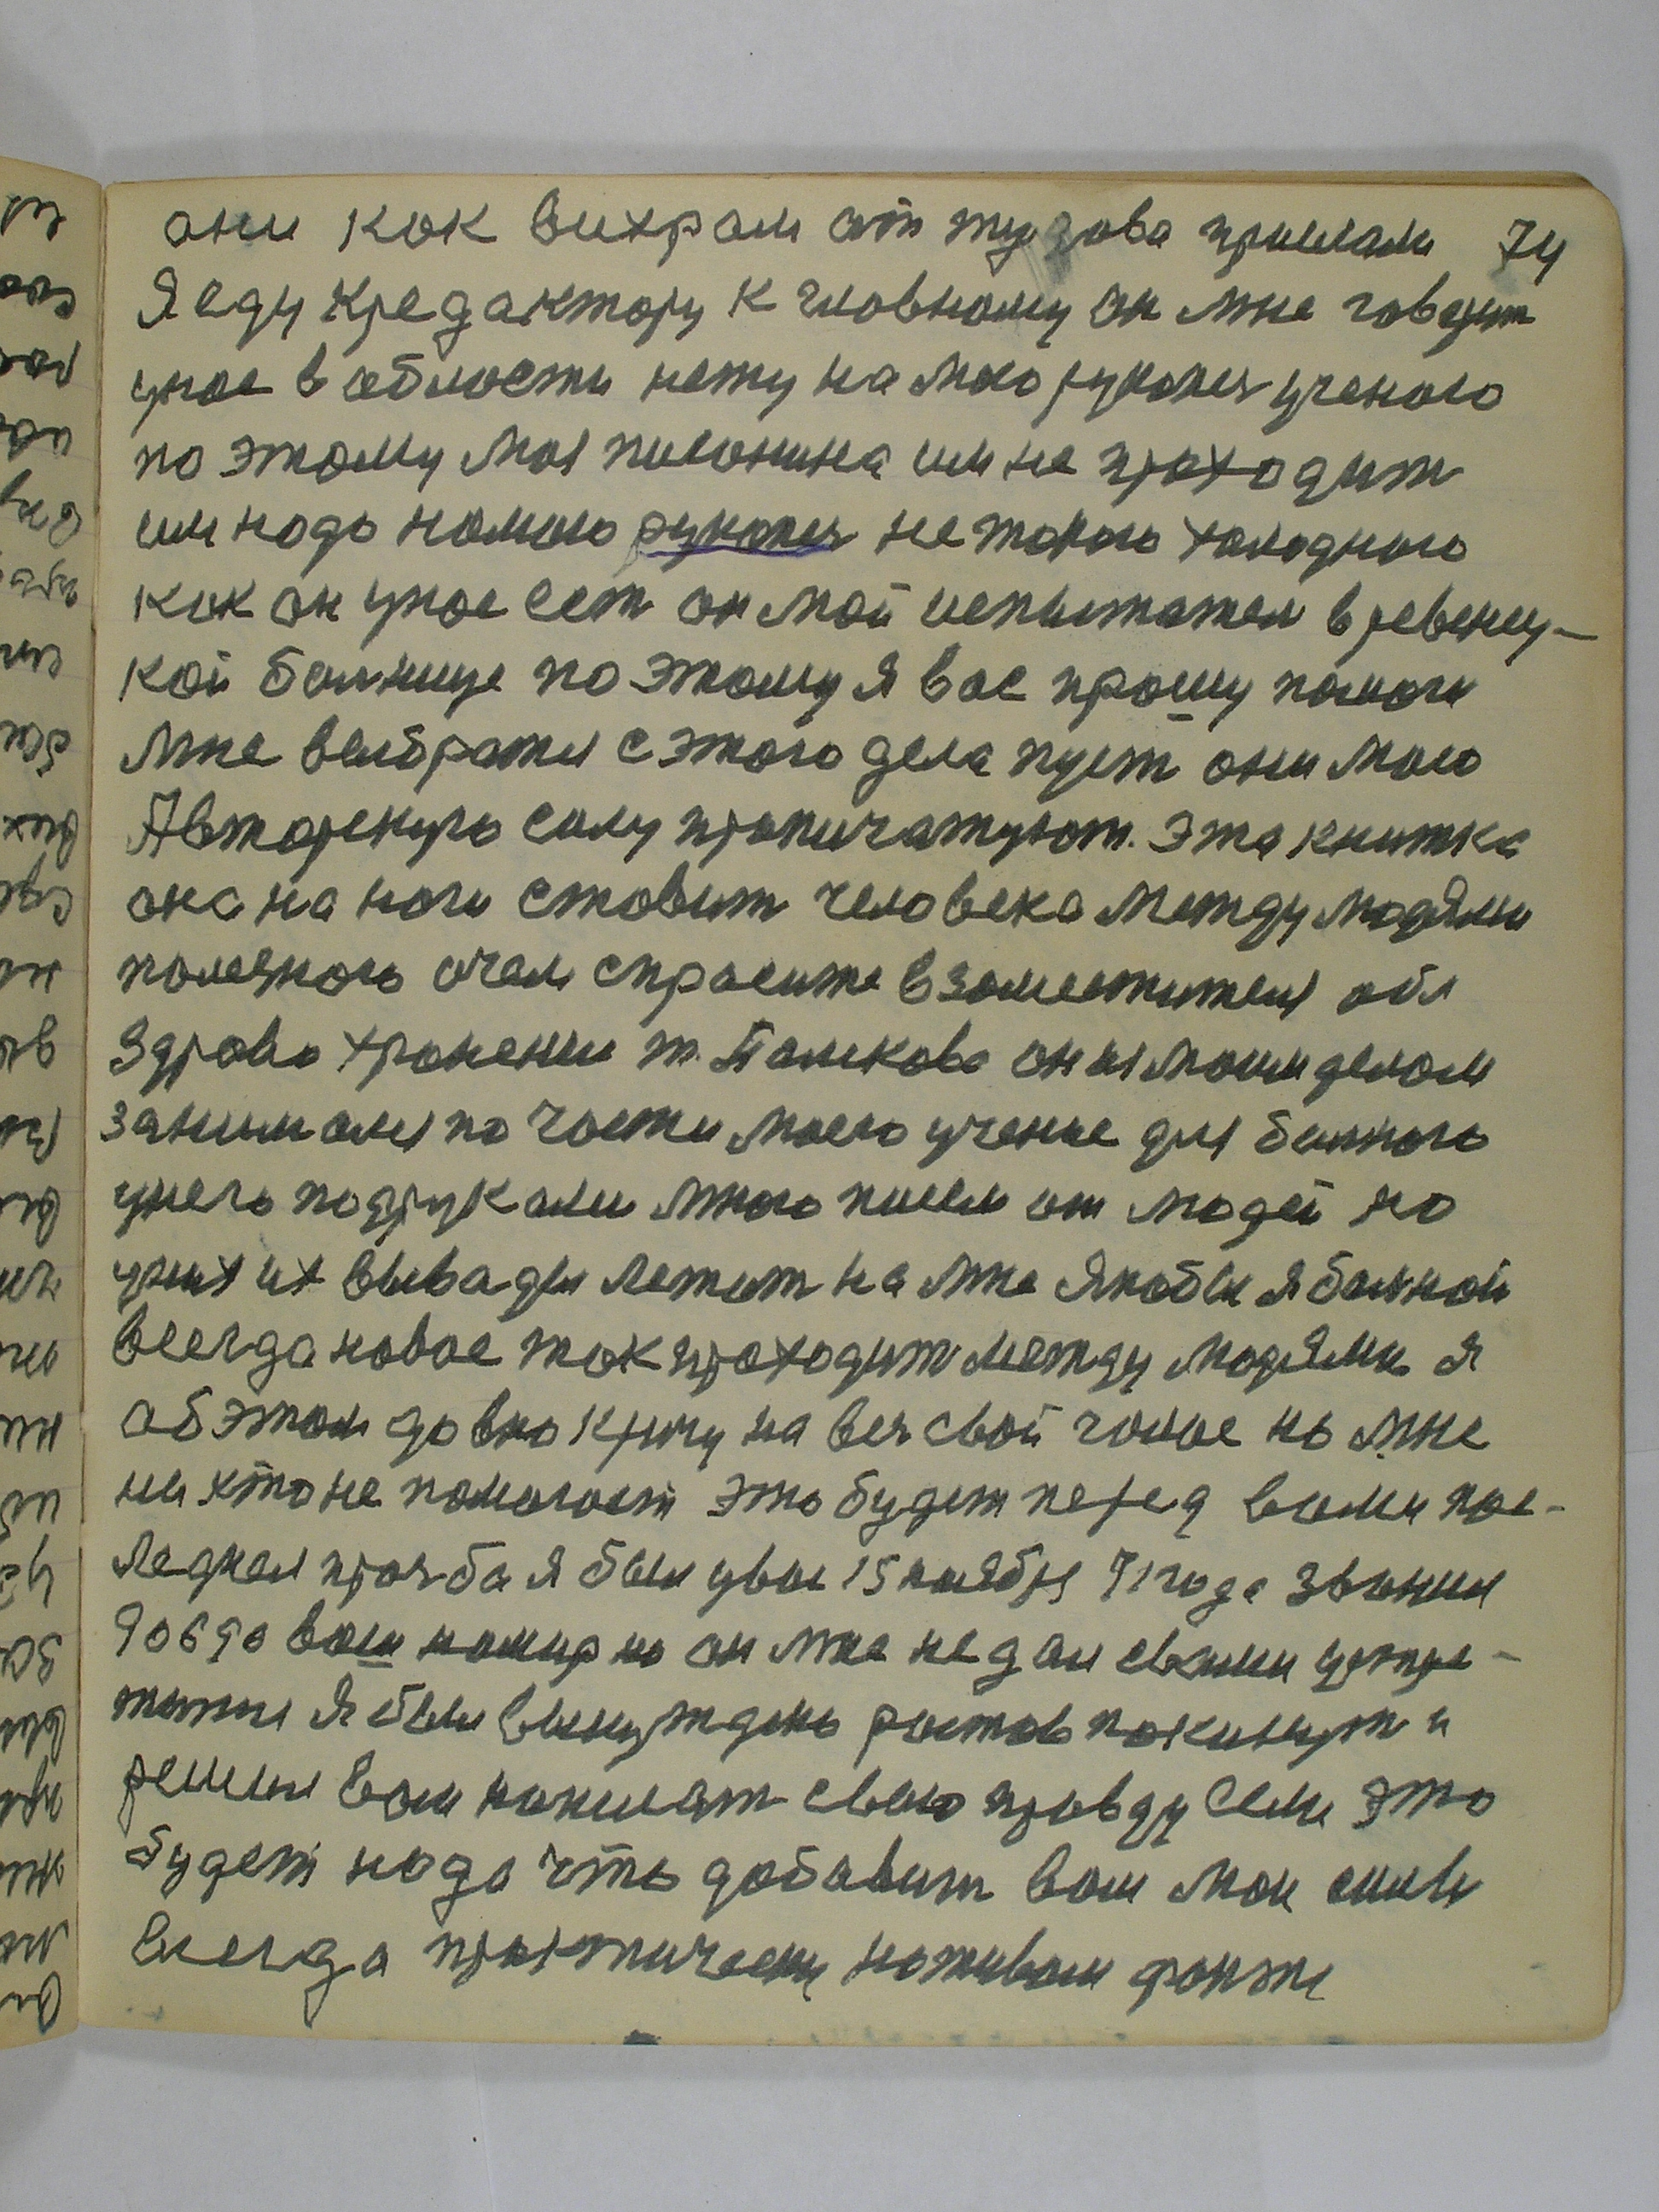 они как вихрам от туздова пришлали 74
Я еду кредактору к гловному он мне говерит
унас в области нету на мою рукопея ученого
по этому моя писонина им не проходит
им нодо на мою рукопея не токого холодного
как он унас ест он мой испытател в ревену-
кой балнице по этому я вас прошу помоги
мне велбратя с этого дела пуст они мою
Авторскую силу пропичатуют. Эта книтка
она на ноги ставит человека между людями
полезного очем спрасите взаместителя обл
здраво хронение т. Палкова он моим делом
занималя по части моего учение для балного
унего подрукоми много писем от людей но
уних их выводи летит на мне якобы я балной
всегда новое ток проходит между людями я
об этом довно кричу на вея свой голос но мне
ни хто не помогает это будет перед вами пос-
ледняя прозба я был увас 15 ноября 71 года звонил
90690 ваш номир но он мне не дал свами устре-
титя я был вынужденъ ростов покинут и
решил вам написат свою правду Если это
будет нода что добавит вам мои силы
всегда практическу наживом факти